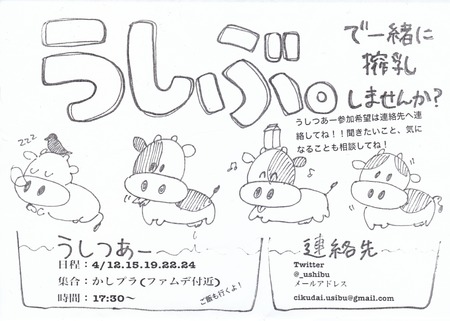 うしぶ。
で一緒に
搾乳
しませんか?
うしつあー参加希望は連絡先へ連
絡してね!!聞きたいこと、気に
なることも相談してね!
zzz
うしつあー
日程:4/12.15.19.22.24
集合:かしプラ(ファムデ付近)
時間:17:30~
ご飯も行くよ!
連絡先
Twitter
@_ushibu
メールアドレス
cikudai.usibu@gmail.com